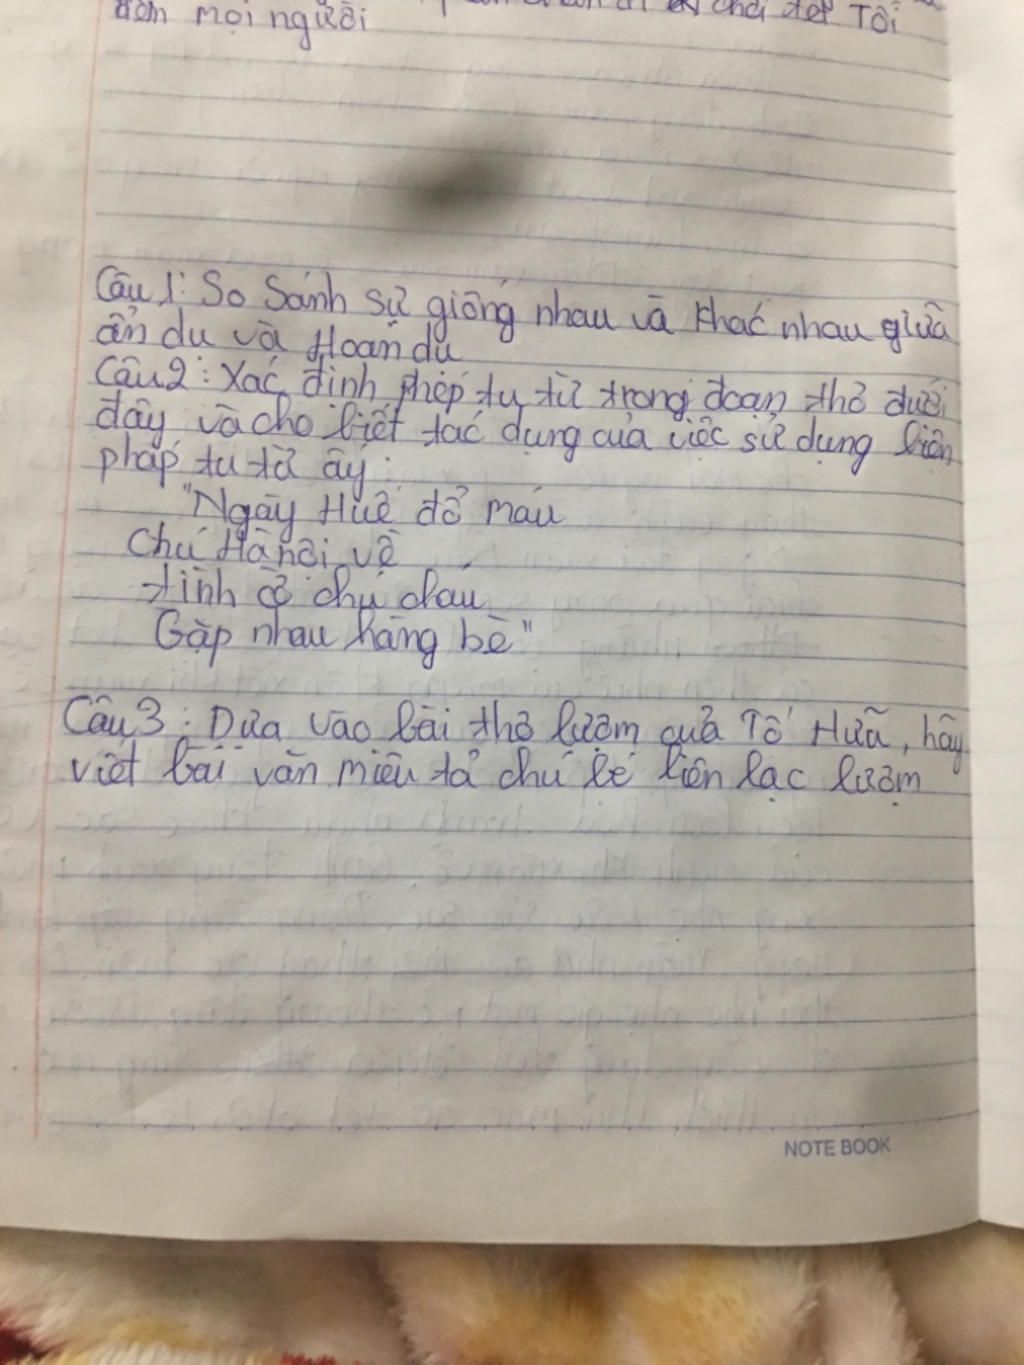 đơm mọi người chơi đẹp Tôi
Câu 1: So Sánh sự giống nhau và khác nhau giữa
ẩn dụ và Hoán dụ
Câu 2: Xác định phép tu từ trong đoạn thơ dưới
đây và cho biết tác dụng của việc sử dụng biện
pháp tu từ ấy:
"Ngày Huế đổ máu
Chú Hà nội về
tình cờ chú cháu
Gặp nhau hàng bè"
Câu 3: Dựa vào bài thơ lượm quả Tố Hữu, hãy
viết bài văn miêu tả chú bé liên lạc lượm
NOTE BOOK